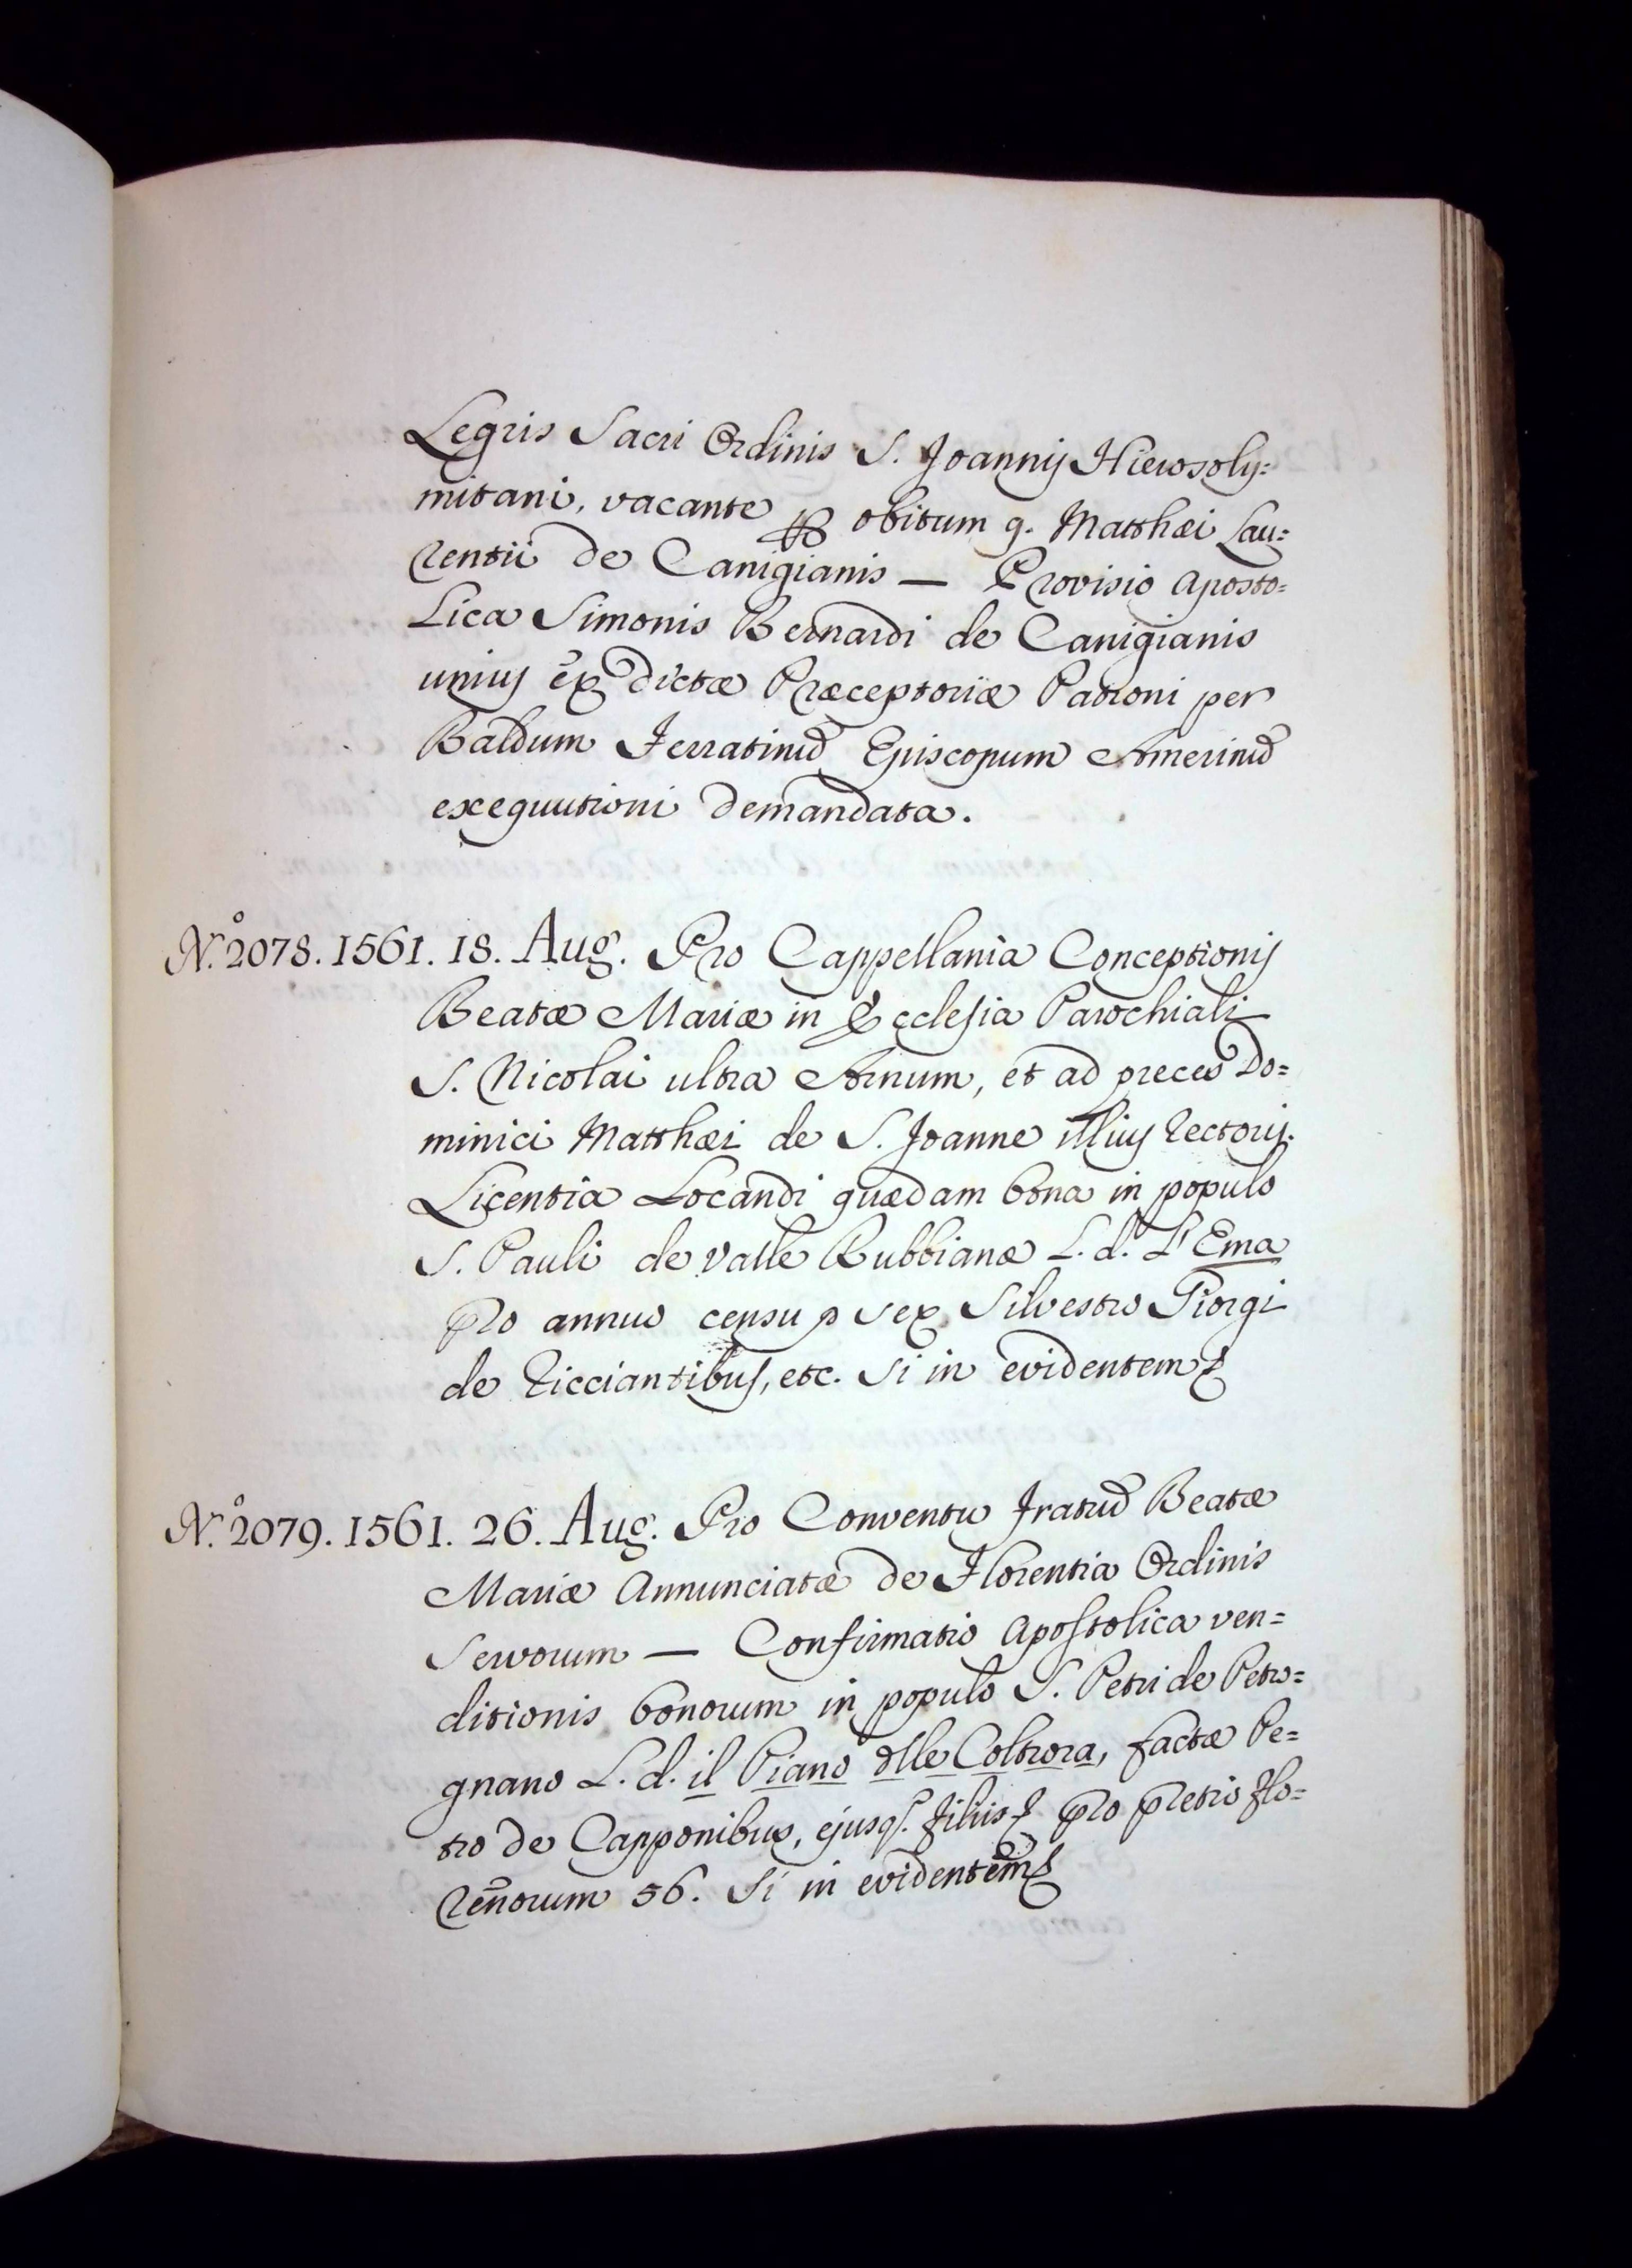 Legris Sacri Ordinis S. Joannis Hierosoly=
mitani, vacante per obitum q. Matthæi Lau=
rentii de Canigianis — Provisio Aposto=
lica Simonis Bernardi de Canigianis
unius ex dictæ Præceptoriæ Patroni per
Baldum Ferratinũ Episcopum Amerinũ
exequutioni demandata.
N.º 2078. 1561. 18. Aug. Pro Cappellania Conceptionis
Beatæ Mariæ in Ecclesia Parochiali
S. Nicolai ultra Arnum, et ad preces Do=
minici Matthæi de S. Joanne illius Rectoris.
Licentia Locandi quædam bona in populo
S. Pauli de Valle Rubbiana L. d. L'Ema
pro annuo censu sex Silvestro Giorgi
de Ricciantibus, etc. Si in evidentem
N.º 2079. 1561. 26. Aug. Pro Conventu Fratrũ Beatæ
Mariæ Annunciatæ de Florentia Ordinis
Servorum — Confirmatio Apostolica ven=
ditionis bonorum in populo S. Petri de Petro=
gnano L. d. il Piano dlle Coltrora, factæ Pe=
tro de Capponibus, ejusq. filiis pro pretio Flo=
renorum 56. Si in evidentem